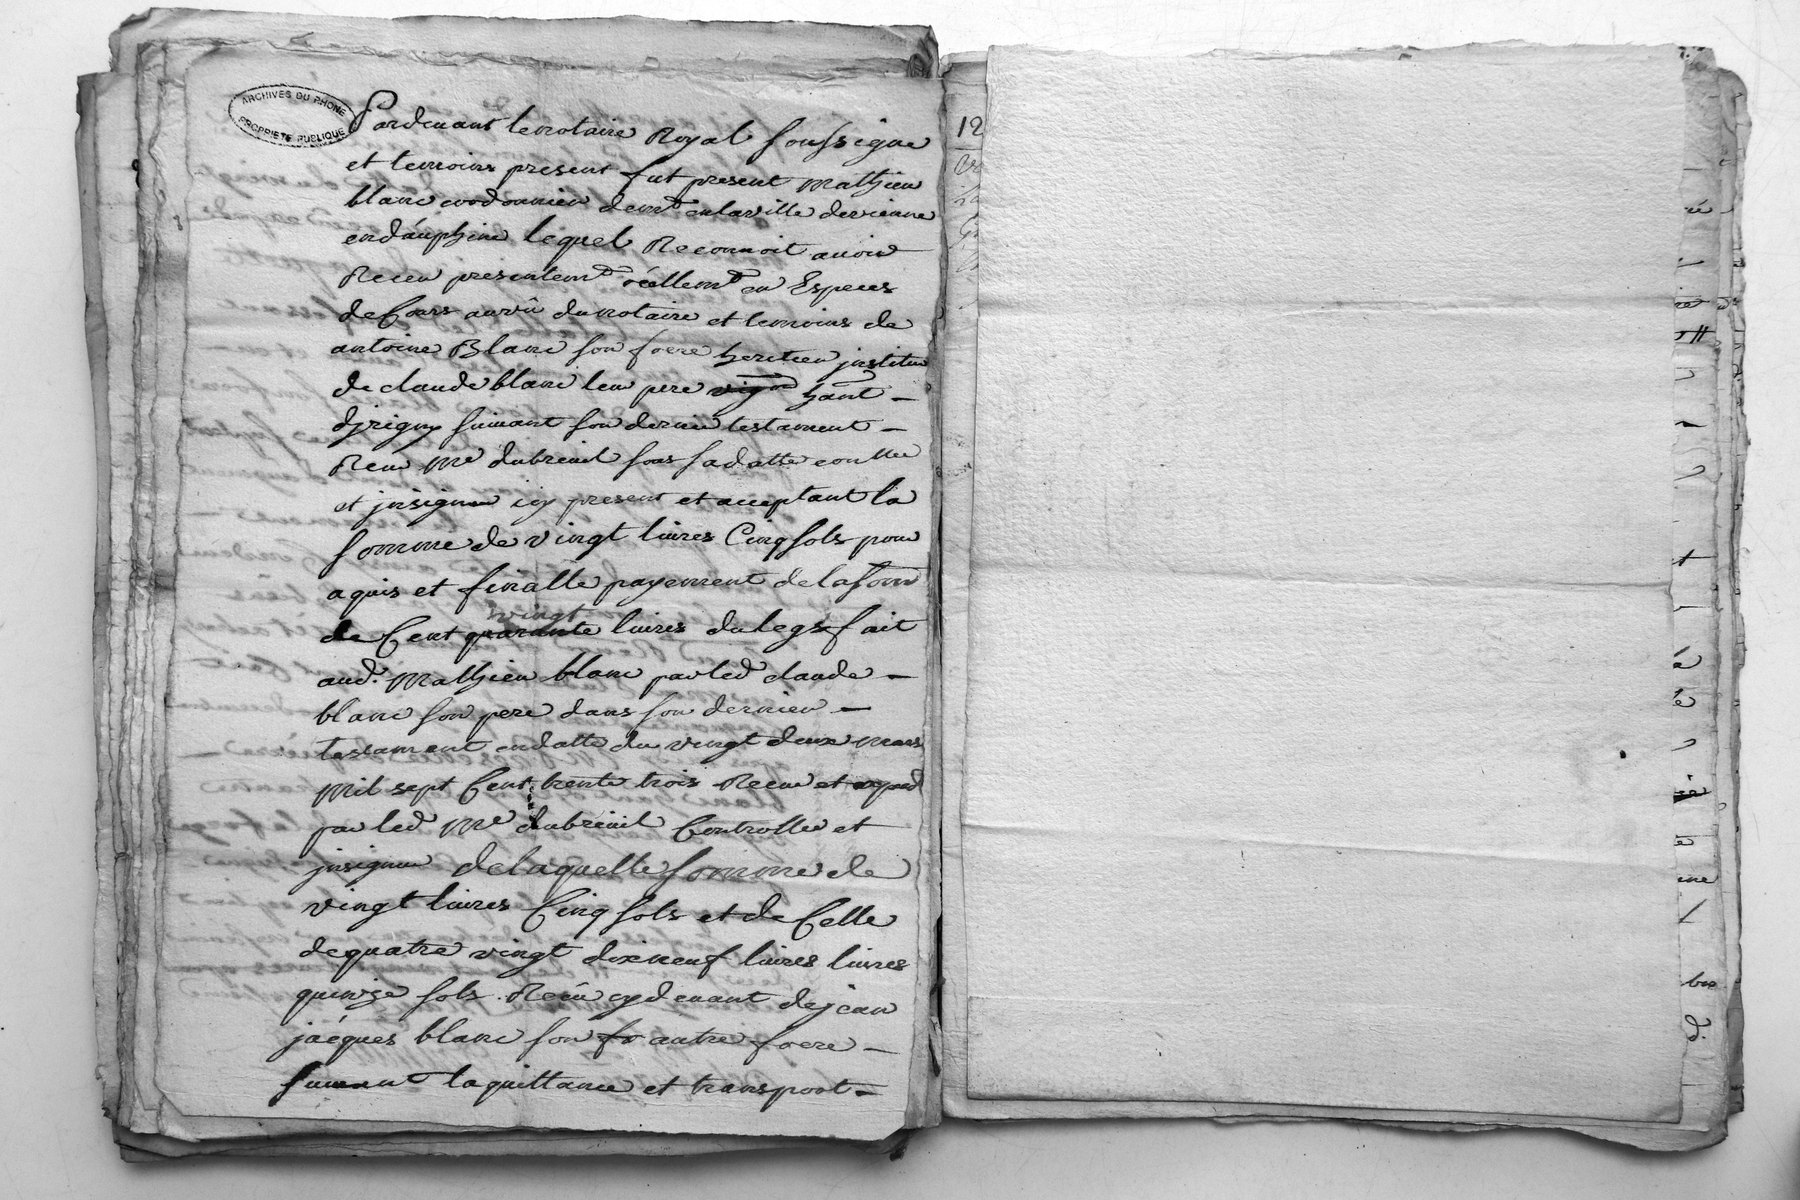 ARCHIVES DU RHONE
PROPRIETE PUBLIQUE
Pardevant le notaire Royal soussigne
et temoins present fut present Mathieu
blanc cordonnier demt en la ville de vienne
en dauphine lequel Reconnoit avoir
Receu presentemt réellemt en Especes
de Cours au vû du notaire et temoins de
antoine Blanc son frere heritier institue
de claude blanc leur pere vigon hant
d'jrigny suivant son dernier testament
Receu Me dubreuil sous sa datte controllé
et jnsignué icy present et acceptant la
somme de vingt livres Cinq sols pour
aquis et finalle payement de la somme
vingt
de Cent quarante livres du legs fait
aud. Mathieu blanc par led claude
blanc son pere dans son dernier
testament en datte du vingt deux mars
Mil sept Cent trente trois Receu et
par led Me dubreuil Controllé et
jnsignué de laquelle somme de
vingt livres Cinq sols et de Celle
de quatre vingt dix neuf livres livres
quinze sols Receu cydevant de jean
jacques blanc son fr autre frere
suivant la quittance et transport
12